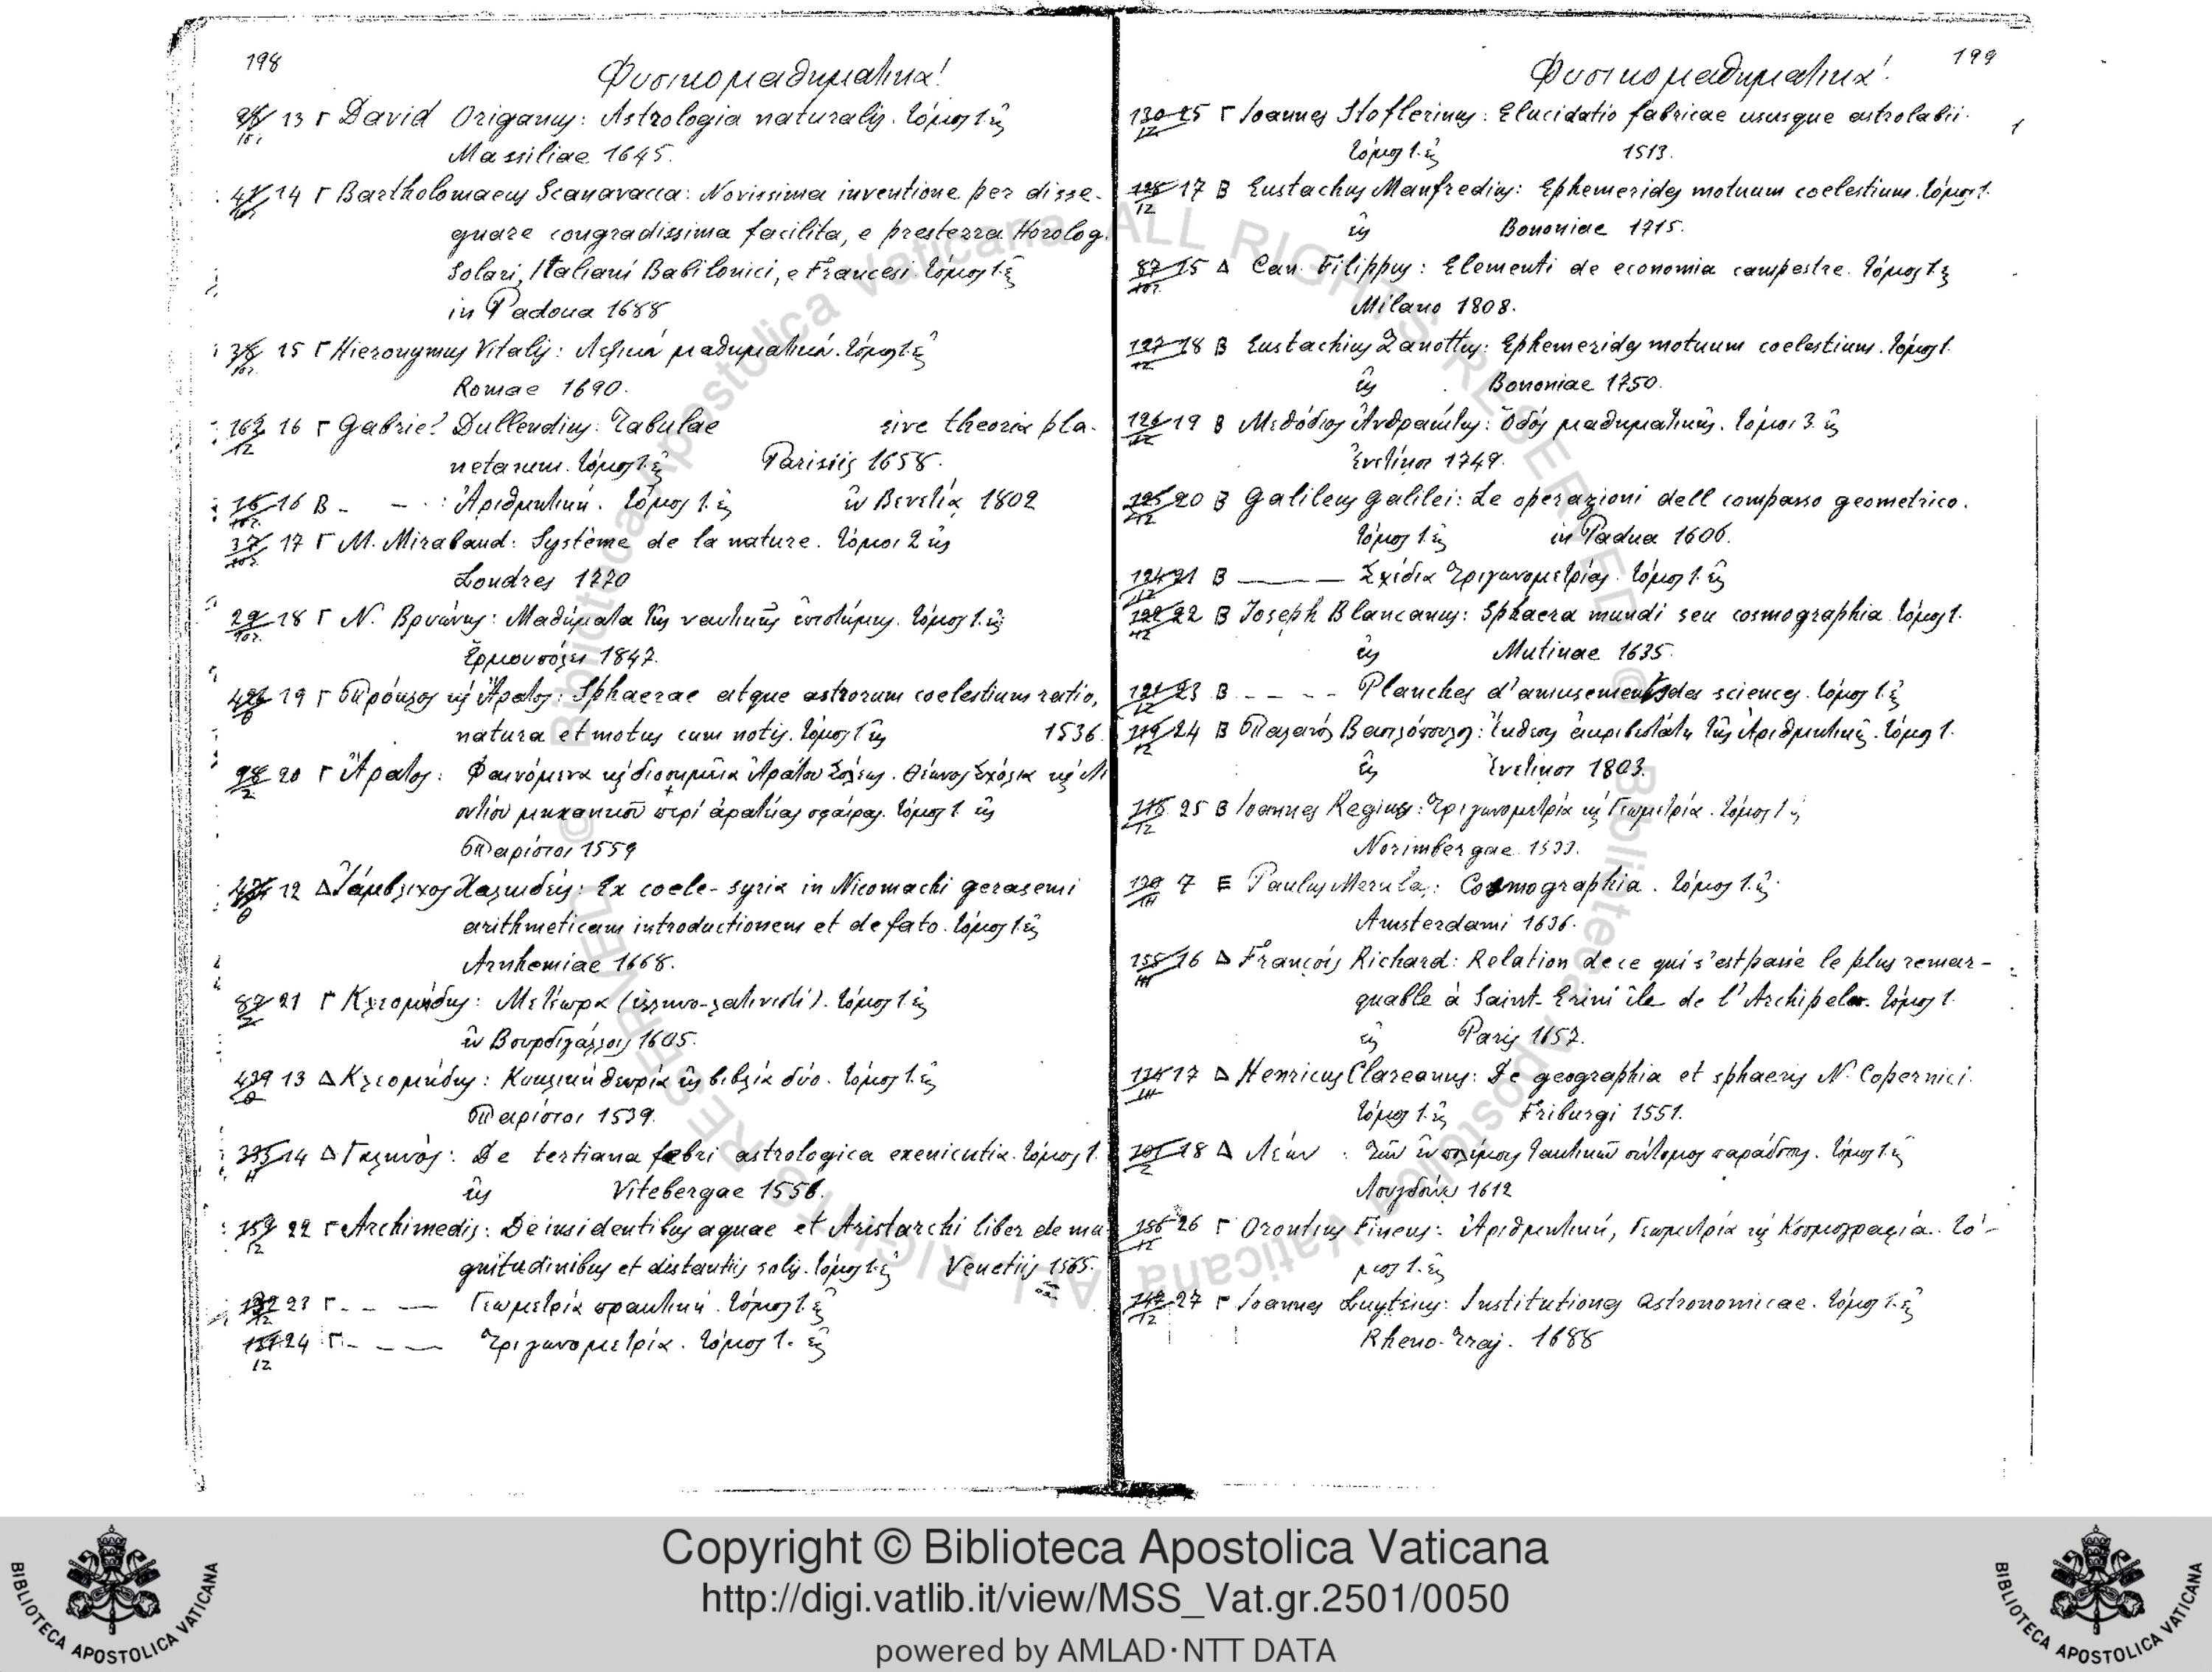 198
Φυσικομαθηματικά!
13 Γ David Origanus: Astrologia naturalis. τόμος 1. εἰς
Massiliae 1645.
14 Γ Bartholomaeus Scanavacca: Novissima inventione per disse-
gnare congradissima facilita, e prestezza Horolog.
Solari, Italiani Babilonici, e Francesi. τόμος 1. εἰς
in Padoua 1688
15 Γ Hieronymus Vitalis: Λεξικὸν μαθηματικόν. τόμος 1. εἰς
Romae 1690.
162/12 16 Γ Gabriel Dullendius: Tabulae sive theoria pla-
netarum. τόμος 1. εἰς Parisiis 1658.
16 Β - - : Ἀριθμητική. τόμος 1. εἰς ἐν Βενετίᾳ 1802
37 17 Γ M. Mirabaud: Système de la nature. τόμοι 2 εἰς
Londres 1770
29 18 Γ Ν. Βρυώνης: Μαθήματα τῆς ναυτικῆς ἐπιστήμης. τόμος 1. εἰς
Ἑρμουπόλει 1847.
19 Γ Πρόκλος καὶ Ἄρατος: Sphaerae atque astrorum coelestium ratio,
natura et motus cum notis. τόμος 1. εἰς 1536.
98/2 20 Γ Ἄρατος: Φαινόμενα καὶ διοσημεῖα Ἀράτου Σολέως. Θέωνος Σχόλια καὶ Λε
οντίου μηχανικοῦ περί ἀρατείας σφαίρας. τόμος 1. εἰς
Παρίσιοι 1559
12 Δ Ἰάμβλιχος Χαλκιδεύς: Ex coele-syria in Nicomachi geraseni
arithmeticam introductionem et de fato. τόμος 1. εἰς
Arnhemiae 1668.
87/2 21 Γ Κλεομήδης: Μετέωρα (ἑλληνο-λατινιστί). τόμος 1. εἰς
ἐν Βουρδιγάλλοις 1605.
439/θ 13 Δ Κλεομήδης: Κυκλική θεωρία εἰς βιβλία δύο. τόμος 1. εἰς
Παρίσιοι 1539.
14 Δ Γαληνός: De tertiana febri astrologica τόμος 1.
εἰς Vitebergae 1556.
159/12 22 Γ Archimedis: De insidentibus aquae et Aristarchi liber de ma
gnitudinibus et distantiis solis. τόμος 1. εἰς Venetiis 1565.
132/12 23 Γ - - — Γεωμετρία πρακτική. τόμος 1. εἰς
24 Γ - - — Τριγωνομετρία. τόμος 1. εἰς
199
Φυσικομαθηματικά!
130/12 25 Γ Ioannes Stoflerinus: Elucidatio fabricae ususque astrolabii.
τόμος 1. εἰς 1513.
128/12 17 Β Eustachius Manfredius: Ephemerides motuum coelestium. τόμος 1.
εἰς Bononiae 1715.
87 15 Δ Can. Filippus: Elementi de economia campestre. τόμος 1. εἰς
Milano 1808.
127/12 18 Β Eustachius Zanottus: Ephemerides motuum coelestium. τόμος 1.
εἰς Bononiae 1750.
126/12 19 Β Μεθόδιος Ἀνθρακίτης: Ὁδός μαθηματικῆς. τόμοι 3. εἰς
Ἐνετίῃσι 1749.
125/12 20 Β Galileus Galilei: Le operazioni dell compasso geometrico.
τόμος 1. εἰς in Padua 1606.
124/12 21 Β ——— Σχέδια Τριγωνομετρίας. τόμος 1. εἰς
122/12 22 Β Joseph Blancanus: Sphaera mundi seu cosmographia τόμος 1.
εἰς Mutinae 1635.
121/12 23 Β - - - - Planches d'amusements des sciences. τόμος 1. εἰς
119/12 24 Β Βασιλόπουλος: Ἔκθεσις ἀκριβεστάτη τῆς Ἀριθμητικῆς. τόμος 1.
εἰς Ἐνετίῃσι 1803.
118/12 25 Β Ioannes Regius: Τριγωνομετρία καὶ Γεωμετρία. τόμος 1. εἰς
Norimbergae 1533.
7 Ε Paulus Merula: Cosmographia. τόμος 1. εἰς
Amsterdami 1636.
16 Δ François Richard: Relation de ce qui s'est passé le plus remar-
quable à Saint-Erini île de l'Archipela. τόμος 1.
εἰς Paris 1657.
17 Δ Henricus Clareanus: De geographia et sphaeris N. Copernici.
τόμος 1. εἰς Friburgi 1551.
18 Δ Λέων : Τῶν ἐν πολέμοις τακτικῶν σύντομος παράδοσις. τόμος 1. εἰς
Λουγδούνῳ 1612
156/12 26 Γ Orontius Fineus: Ἀριθμητική, Γεωμετρία καὶ Κοσμογραφία. τό-
μος 1. εἰς
27 Γ Ioannes Luytsius: Institutiones astronomicae. τόμος 1. εἰς
Rheno-Traj. 1688
© Biblioteca Apostolica Vaticana ALL RIGHTS RESERVED
© Biblioteca Apostolica Vaticana ALL RIGHTS RESERVED
Copyright © Biblioteca Apostolica Vaticana
http://digi.vatlib.it/view/MSS_Vat.gr.2501/0050
powered by AMLAD·NTT DATA
BIBLIOTECA APOSTOLICA VATICANA
BIBLIOTECA APOSTOLICA VATICANA